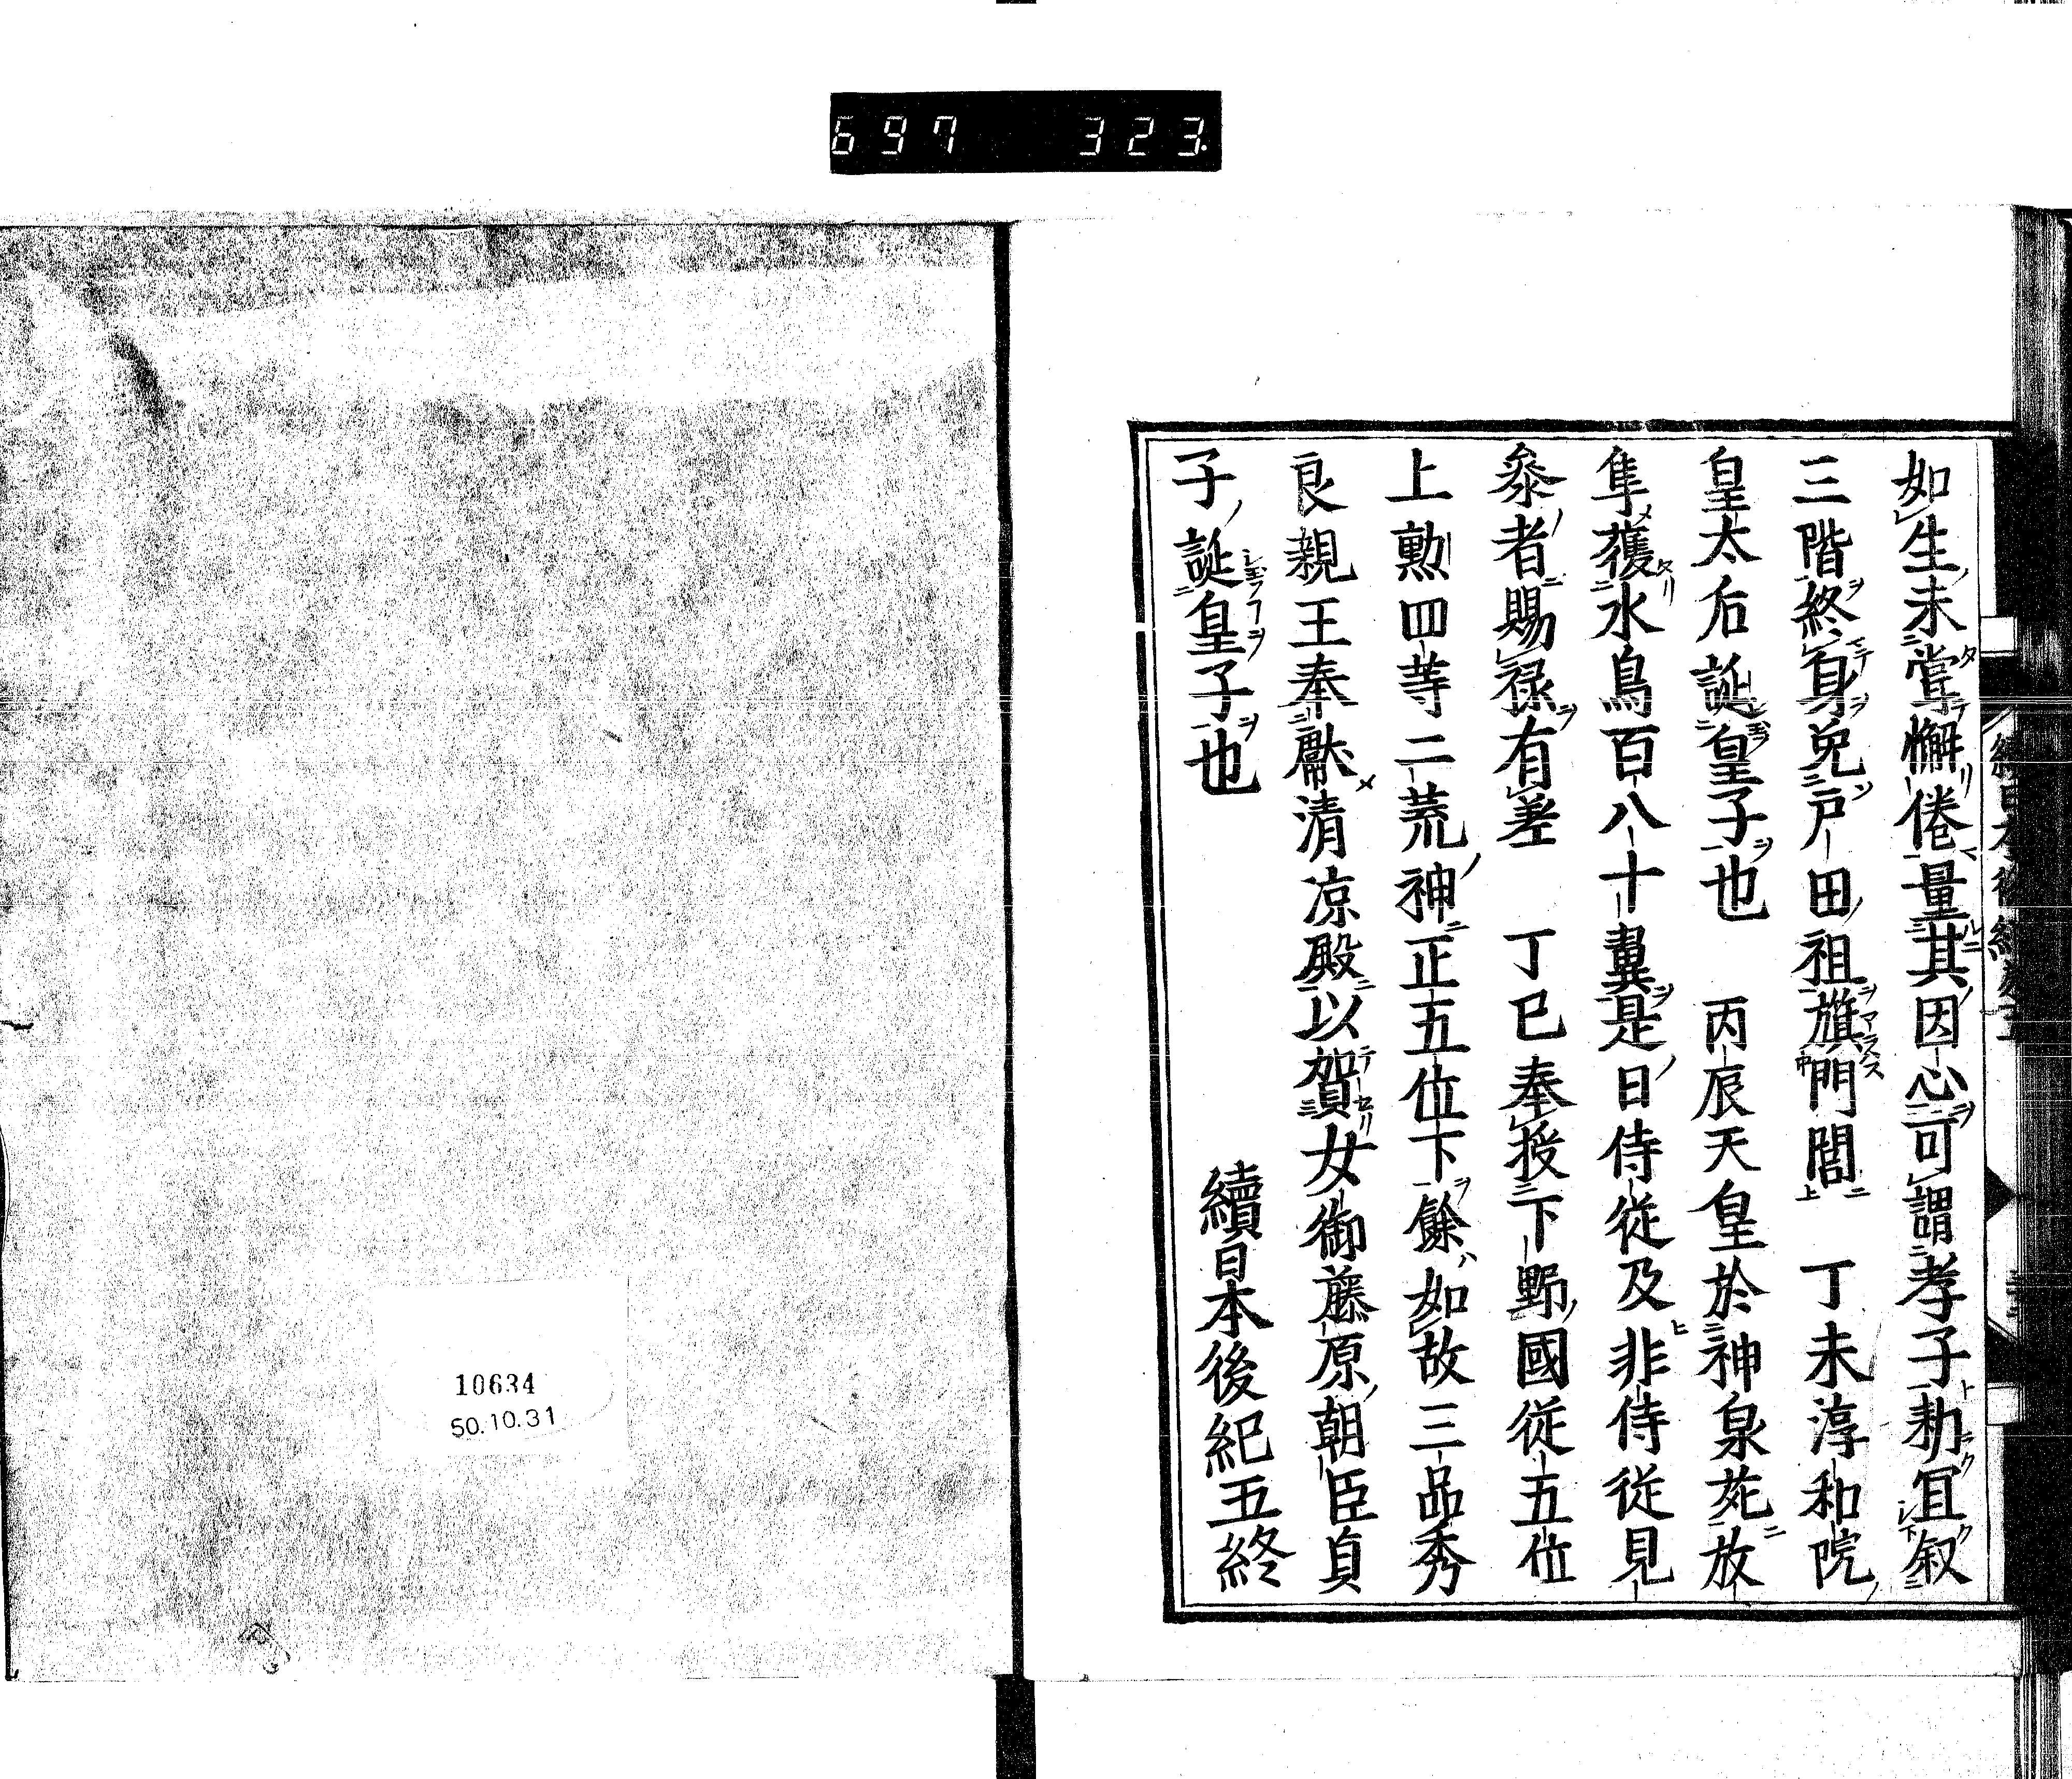 697 323.
如生未嘗懈倦量其因心可謂孝子勑宜叙
三階終身免戸田祖旌門閭 丁未淳和院
皇太后誕皇子也 丙辰天皇於神泉苑放
隼獲水鳥百八十翼是日侍從及非侍從見
叅者賜祿有差 丁巳奉授下野國從五位
上勲四等二荒神正五位下餘如故三品秀
良親王奉獻清凉殿以賀女御藤原朝臣貞
子誕皇子也
續日本後紀五終
10634
50.10.31